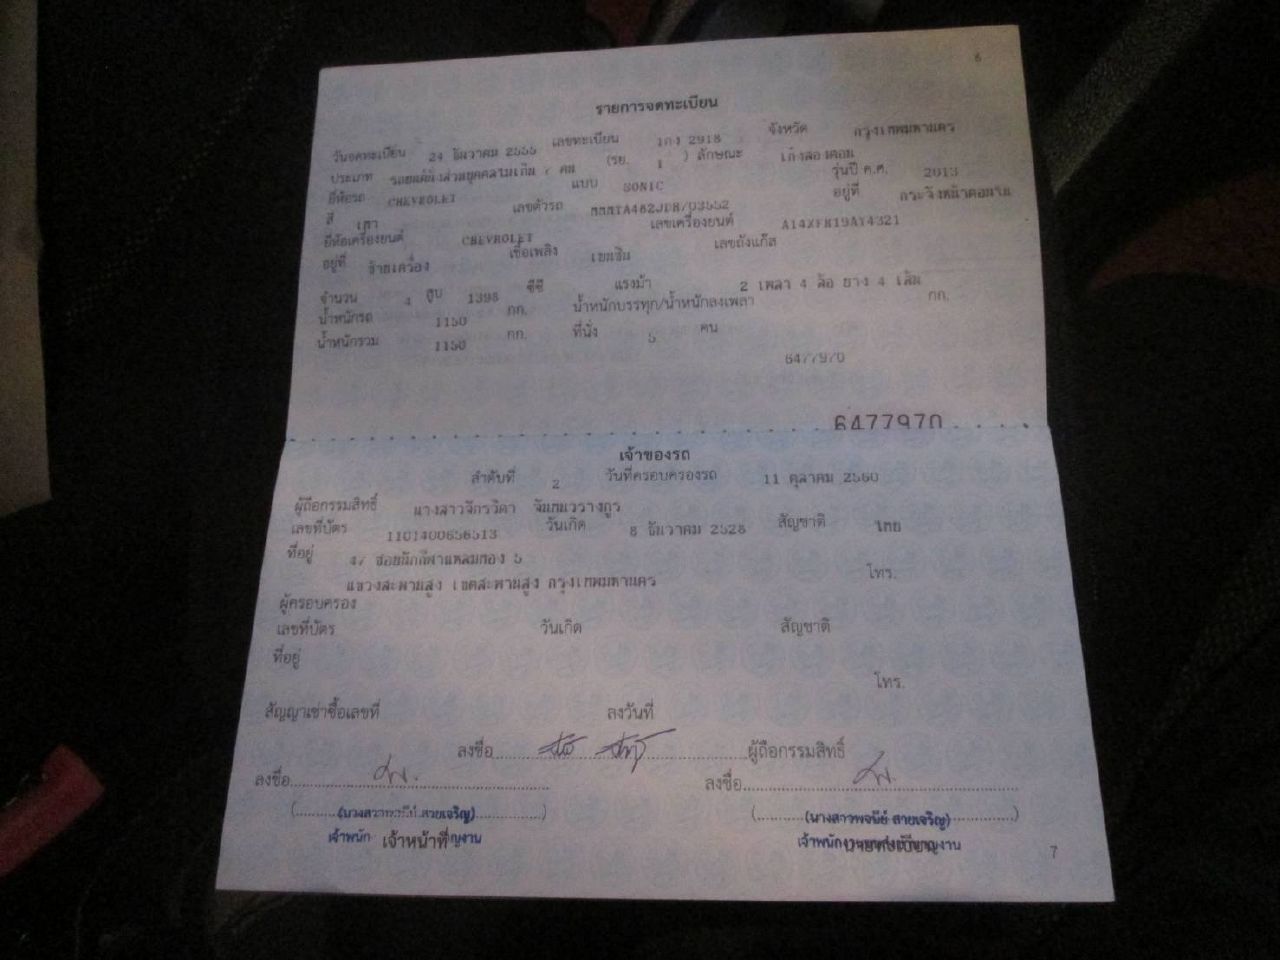 6
รายการจดทะเบียน
วันจดทะเบียน 24 ธันวาคม 2555 เลขทะเบียน 1กง 2918 จังหวัด กรุงเทพมหานคร
ประเภท รถยนต์นั่งส่วนบุคคลไม่เกิน 7 คน (รย. 1 ) ลักษณะ เก๋งสองตอน
ยี่ห้อรถ CHEVROLET แบบ SONIC รุ่นปี ค.ศ. 2013
สี เทา เลขตัวรถ อยู่ที่
ยี่ห้อเครื่องยนต์ CHEVROLET เลขเครื่องยนต์
อยู่ที่ ซ้ายเครื่อง เชื้อเพลิง เบนซิน เลขถังแก๊ส
จำนวน 4 สูบ 1398 ซีซี แรงม้า 2 เพลา 4 ล้อ ยาง 4 เส้น
น้ำหนักรถ 1150 กก. น้ำหนักบรรทุก/น้ำหนักลงเพลา กก.
น้ำหนักรวม 1150 กก. ที่นั่ง 5 คน
6477970
6477970
เจ้าของรถ
ลำดับที่ 2 วันที่ครอบครองรถ 11 ตุลาคม 2560
ผู้ถือกรรมสิทธิ์
เลขที่บัตร 1101400656513 วันเกิด 8 ธันวาคม 2528 สัญชาติ ไทย
ที่อยู่ 47 ซอยนักกีฬาแหลมทอง 5
แขวงสะพานสูง เขตสะพานสูง กรุงเทพมหานคร โทร.
ผู้ครอบครอง
เลขที่บัตร วันเกิด สัญชาติ
ที่อยู่
โทร.
สัญญาเช่าซื้อเลขที่ ลงวันที่
ลงชื่อ ผู้ถือกรรมสิทธิ์
ลงชื่อ ลงชื่อ
(นางสาวพจนีย์ สายเจริญ) (นางสาวพจนีย์ สายเจริญ)
เจ้าพนัก เจ้าหน้าที่
7